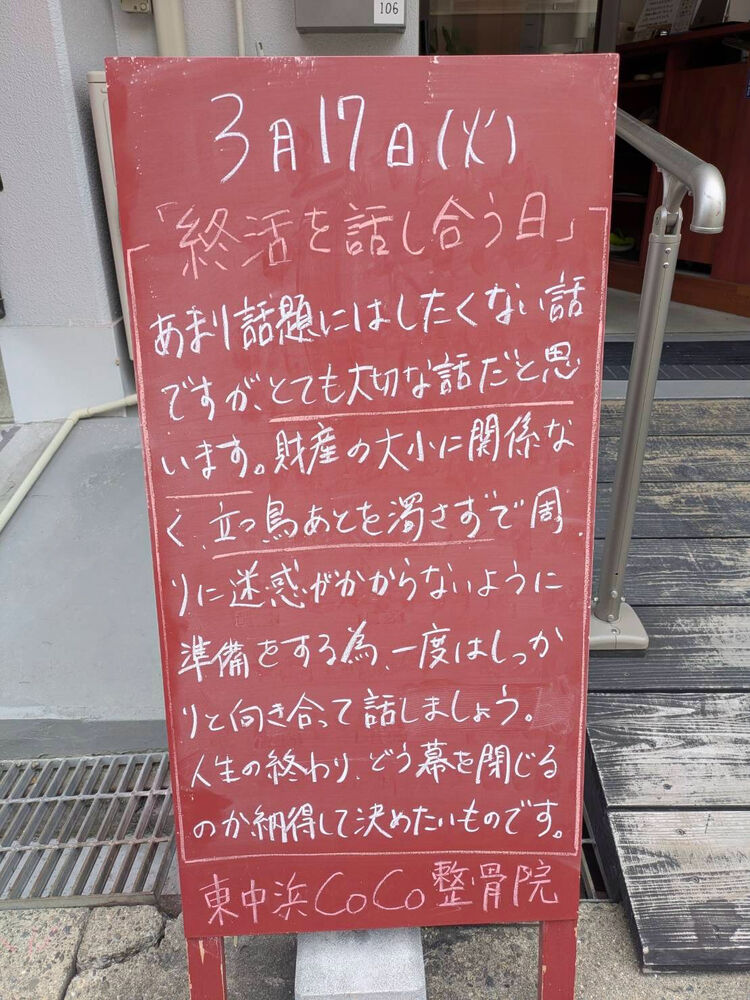 106
3月17日(火)
「終活を話し合う日」
あまり話題にはしたくない話
ですが、とても大切な話だと思
います。財産の大小に関係な
く、立つ鳥あとを濁さずで周
りに迷惑がかからないように
準備をする為、一度はしっか
りと向き合って話しましょう。
人生の終わり、どう幕を閉じる
のか納得して決めたいものです。
東中浜CoCo整骨院